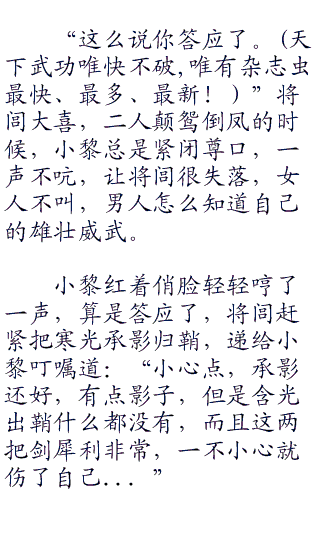 “这么说你答应了。(天
下武功唯快不破,唯有杂志虫
最快、最多、最新！)”将
闾大喜，二人颠鸳倒凤的时
候，小黎总是紧闭尊口，一
声不吭，让将闾很失落，女
人不叫，男人怎么知道自己
的雄壮威武。
小黎红着俏脸轻轻哼了
一声，算是答应了，将闾赶
紧把寒光承影归鞘，递给小
黎叮嘱道：“小心点，承影
还好，有点影子，但是含光
出鞘什么都没有，而且这两
把剑犀利非常，一不小心就
伤了自己...”